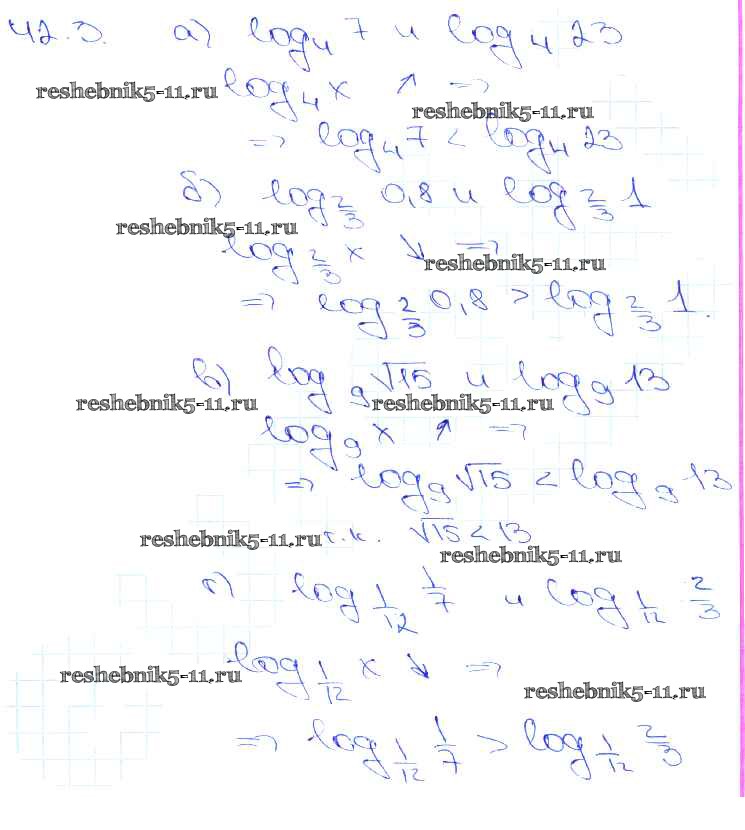 42.3. а) log₄ 7 и log₄ 23
reshebnik5-11.ru log₄ x ↑ =>
reshebnik5-11.ru
=> log₄ 7 < log₄ 23
б) log_{2/3} 0,8 и log_{2/3} 1
reshebnik5-11.ru
log_{2/3} x ↓ =>
reshebnik5-11.ru
=> log_{2/3} 0,8 > log_{2/3} 1.
в) log₉ √15 и log₉ 13
reshebnik5-11.ru reshebnik5-11.ru
log₉ x ↑ =>
=> log₉ √15 < log₉ 13
reshebnik5-11.ru т.к. √15 < 13
reshebnik5-11.ru
г) log_{1/12} 1/7 и log_{1/12} 2/3
reshebnik5-11.ru log_{1/12} x ↓ =>
reshebnik5-11.ru
=> log_{1/12} 1/7 > log_{1/12} 2/3